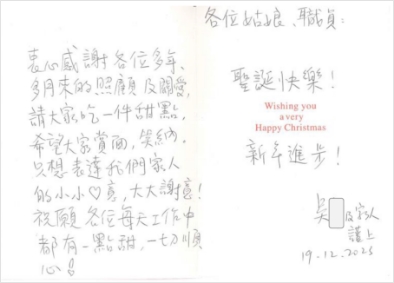 各位姑娘、職員：
聖誕快樂！
Wishing you
a very
Happy Christmas
新年進步！
吳 及家人
謹上
19-12-2025
衷心感謝各位多年、
多月來的照顧及關愛，
請大家吃一件甜點，
希望大家賞面，笑納。
只想表達我們家人
的小小♡意，大大謝意！
祝願各位每天工作中
都有一點甜，一切順
心！